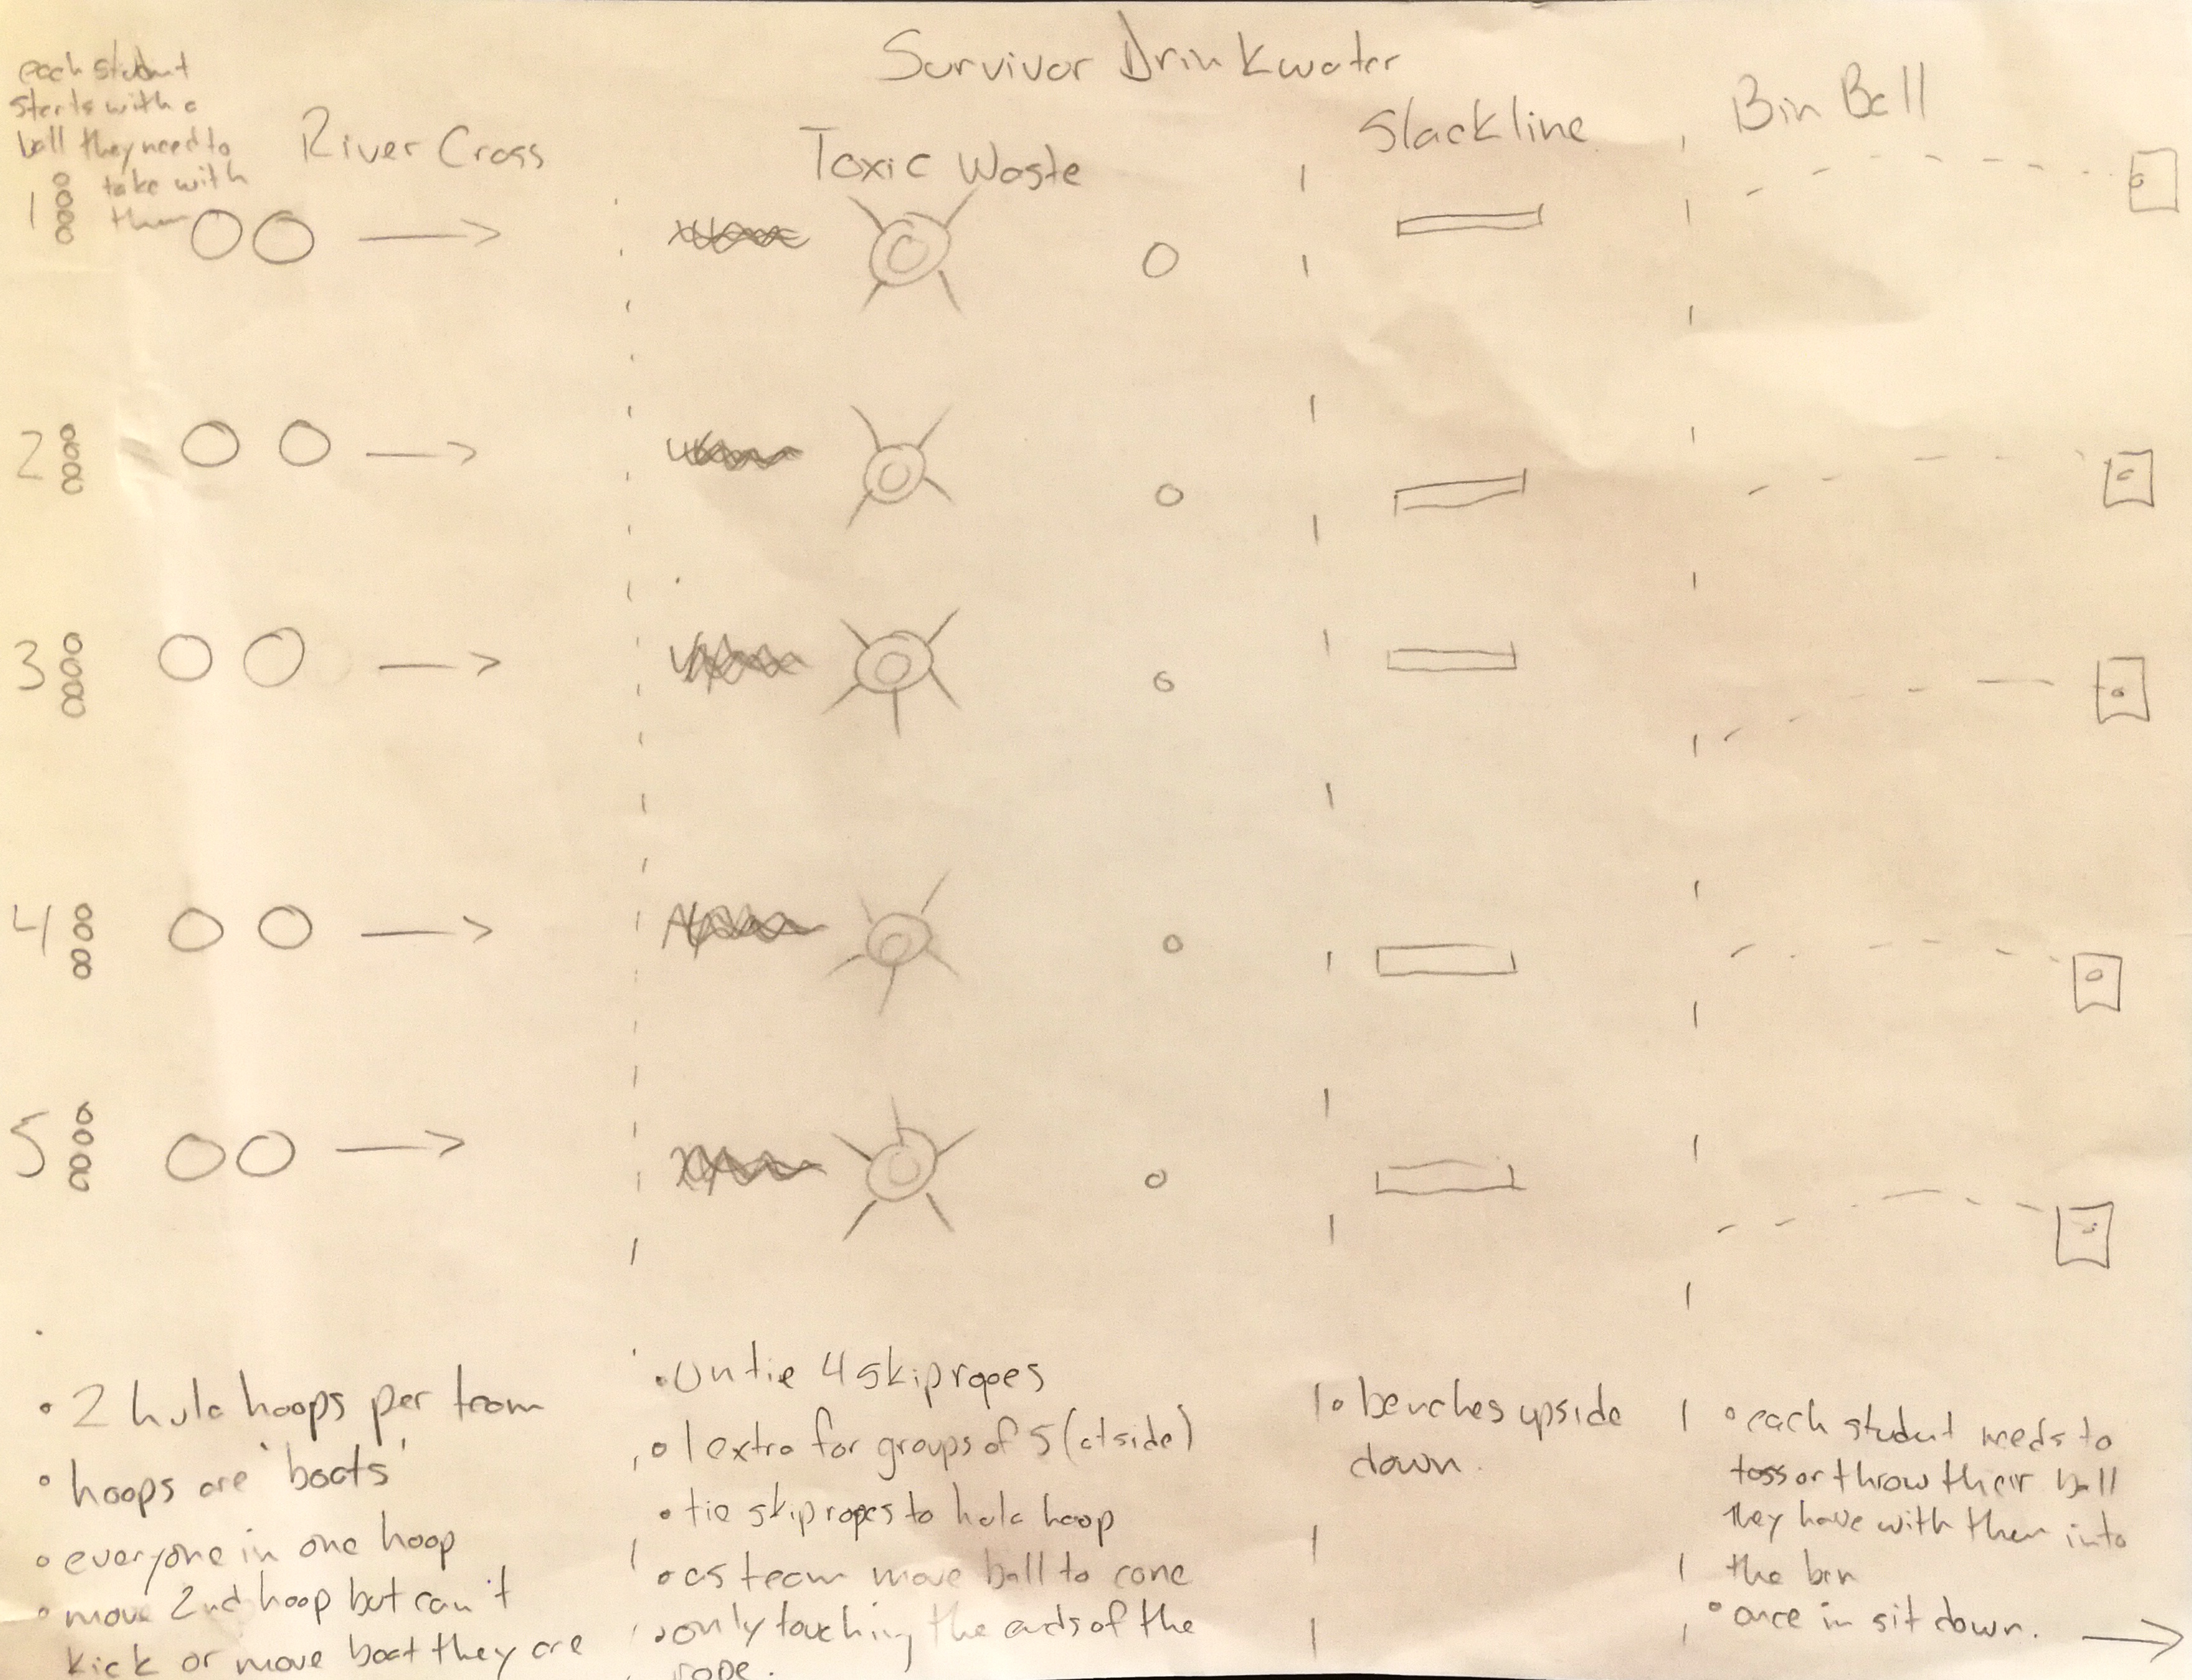 Survivor Drinkwater
each student
starts with a
ball they need to
take with
them
River Cross
Toxic Waste
Slackline
Bin Ball
1
2
3
4
5
• 2 hula hoops per team
• hoops are 'boats'
• everyone in one hoop
• move 2nd hoop but can't
kick or move boat they are
• Untie 4 skipropes
• 1 extra for groups of 5 (at side)
• tie skipropes to hula hoop
• as team move ball to cone
• only touching the ends of the
rope.
• benches upside
down.
• each student needs to
toss or throw their ball
they have with them into
the bin
• once in sit down.